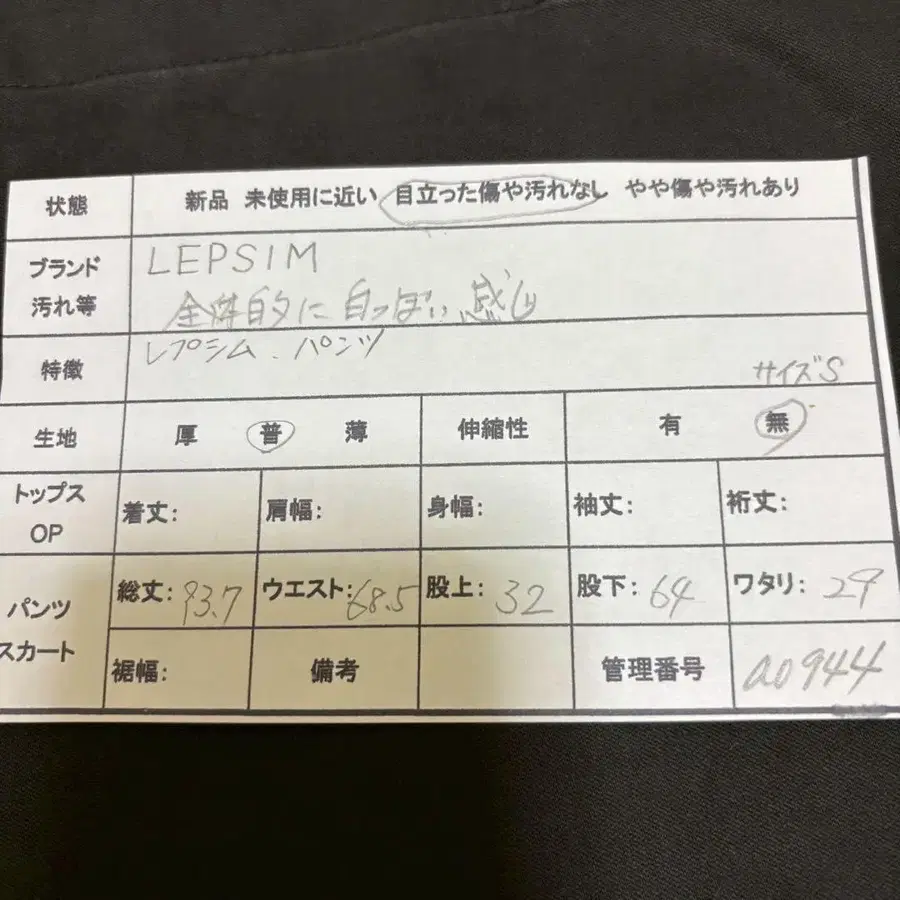 状態 新品 未使用に近い 目立った傷や汚れなし やや傷や汚れあり
ブランド LEPSIM
汚れ等 全体的に白っぽい感じ
特徴 レプシム、パンツ サイズS
生地 厚 普 薄 伸縮性 有 無
トップス OP 着丈: 肩幅: 身幅: 袖丈: 裄丈:
パンツ スカート 総丈: 93.7 ウエスト: 68.5 股上: 32 股下: 64 ワタリ: 29
裾幅: 備考 管理番号 a0944